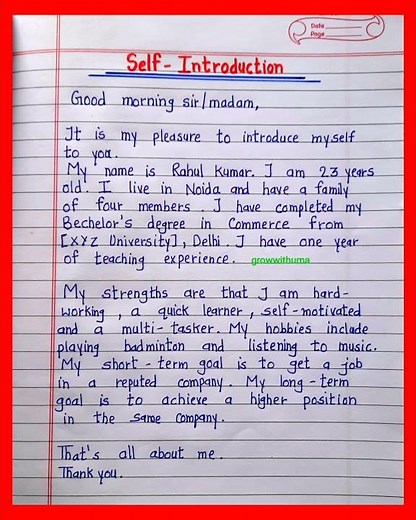 Date
Page
Self-Introduction
Good morning sir/madam,
It is my pleasure to introduce myself
to you.
My name is Rahul Kumar. I am 23 years
old. I live in Noida and have a family
of four members. I have completed my
Bechelor's degree in Commerce from
[XYZ University], Delhi. I have one year
of teaching experience. growwithuma
My strengths are that I am hard-
working, a quick learner, self-motivated
and a multi-tasker. My hobbies include
playing badminton and listening to music.
My short-term goal is to get a job
in a reputed company. My long-term
goal is to achieve a higher position
in the same company.
That's all about me.
Thank you.